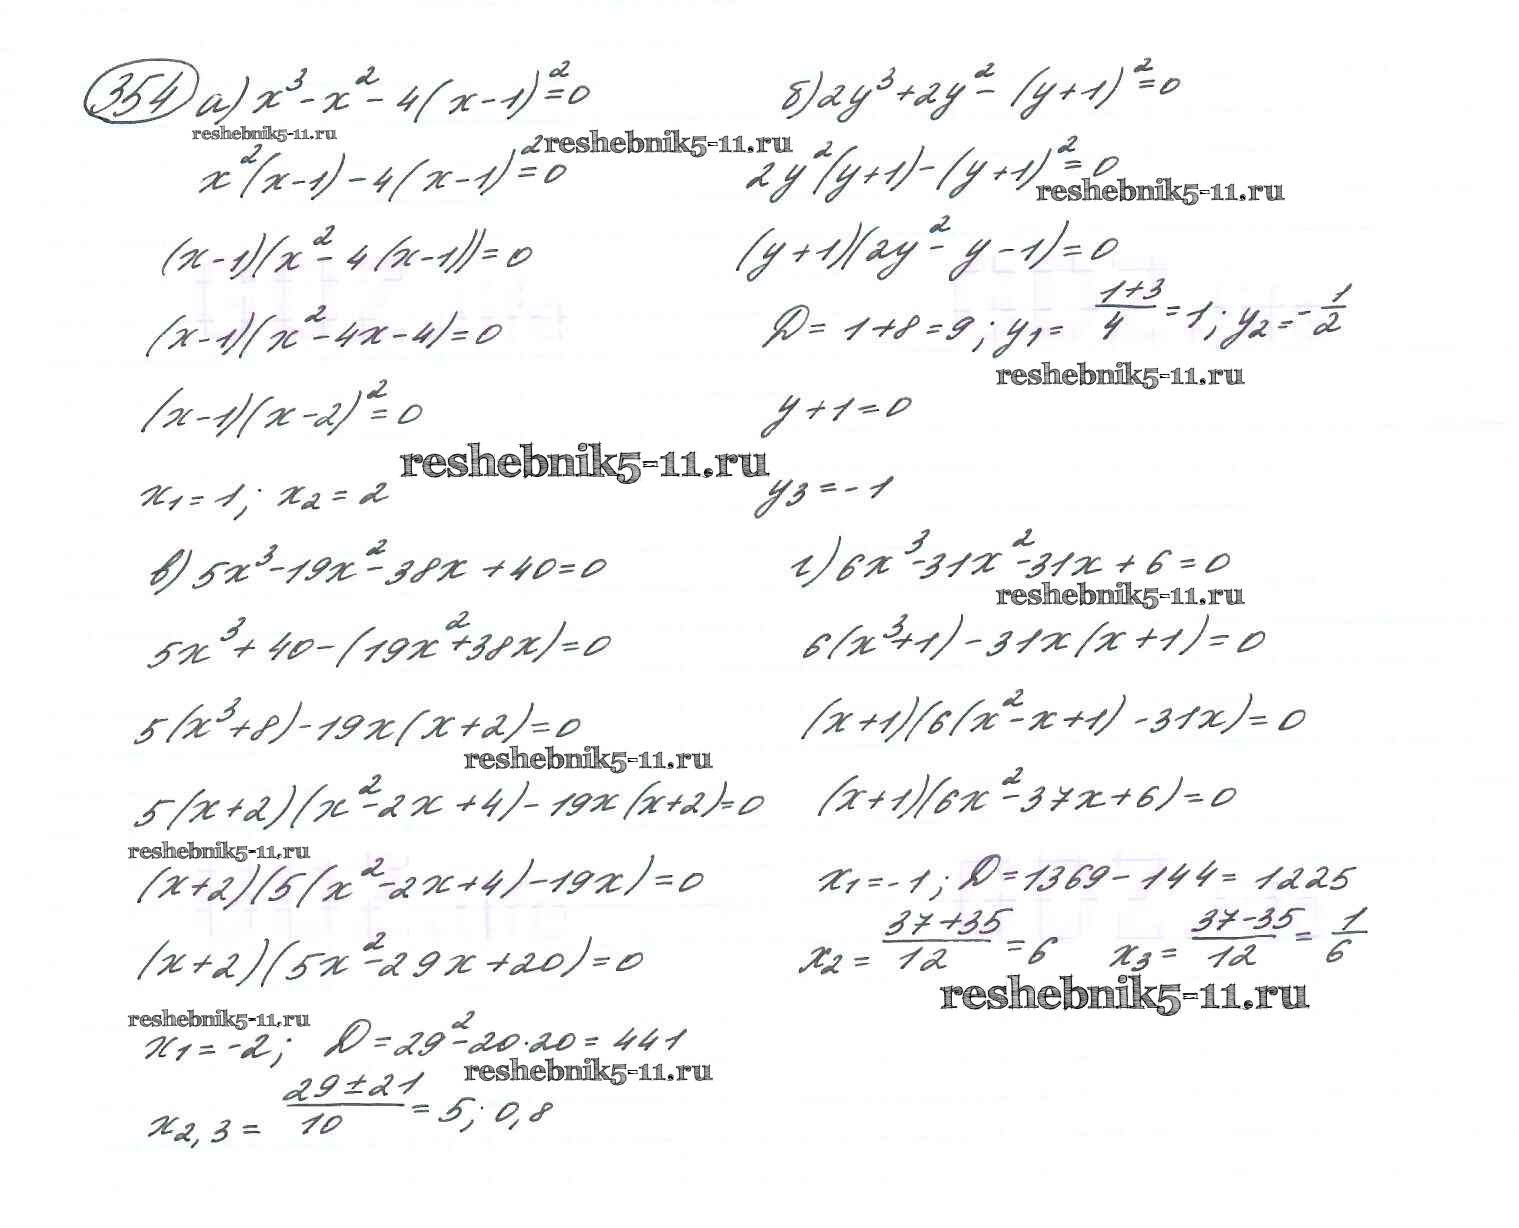 354 а) x³ - x² - 4(x-1)² = 0
reshebnik5-11.ru
x²(x-1) - 4(x-1)² = 0
reshebnik5-11.ru
(x-1)(x² - 4(x-1)) = 0
(x-1)(x² - 4x - 4) = 0
(x-1)(x-2)² = 0
reshebnik5-11.ru
x₁ = 1; x₂ = 2
б) 2y³ + 2y² - (y+1)² = 0
2y²(y+1) - (y+1)² = 0
reshebnik5-11.ru
(y+1)(2y² - y - 1) = 0
Д = 1+8 = 9; y₁ = (1+3)/4 = 1; y₂ = -1/2
reshebnik5-11.ru
y+1 = 0
y₃ = -1
в) 5x³ - 19x² - 38x + 40 = 0
5x³ + 40 - (19x² + 38x) = 0
5(x³+8) - 19x(x+2) = 0
reshebnik5-11.ru
5(x+2)(x² - 2x + 4) - 19x(x+2) = 0
reshebnik5-11.ru
(x+2)(5(x² - 2x + 4) - 19x) = 0
(x+2)(5x² - 29x + 20) = 0
reshebnik5-11.ru
x₁ = -2; Д = 29² - 20·20 = 441
reshebnik5-11.ru
x₂,₃ = (29±21)/10 = 5; 0,8
г) 6x³ - 31x² - 31x + 6 = 0
reshebnik5-11.ru
6(x³+1) - 31x(x+1) = 0
(x+1)(6(x² - x + 1) - 31x) = 0
(x+1)(6x² - 37x + 6) = 0
x₁ = -1; Д = 1369 - 144 = 1225
x₂ = (37+35)/12 = 6 x₃ = (37-35)/12 = 1/6
reshebnik5-11.ru